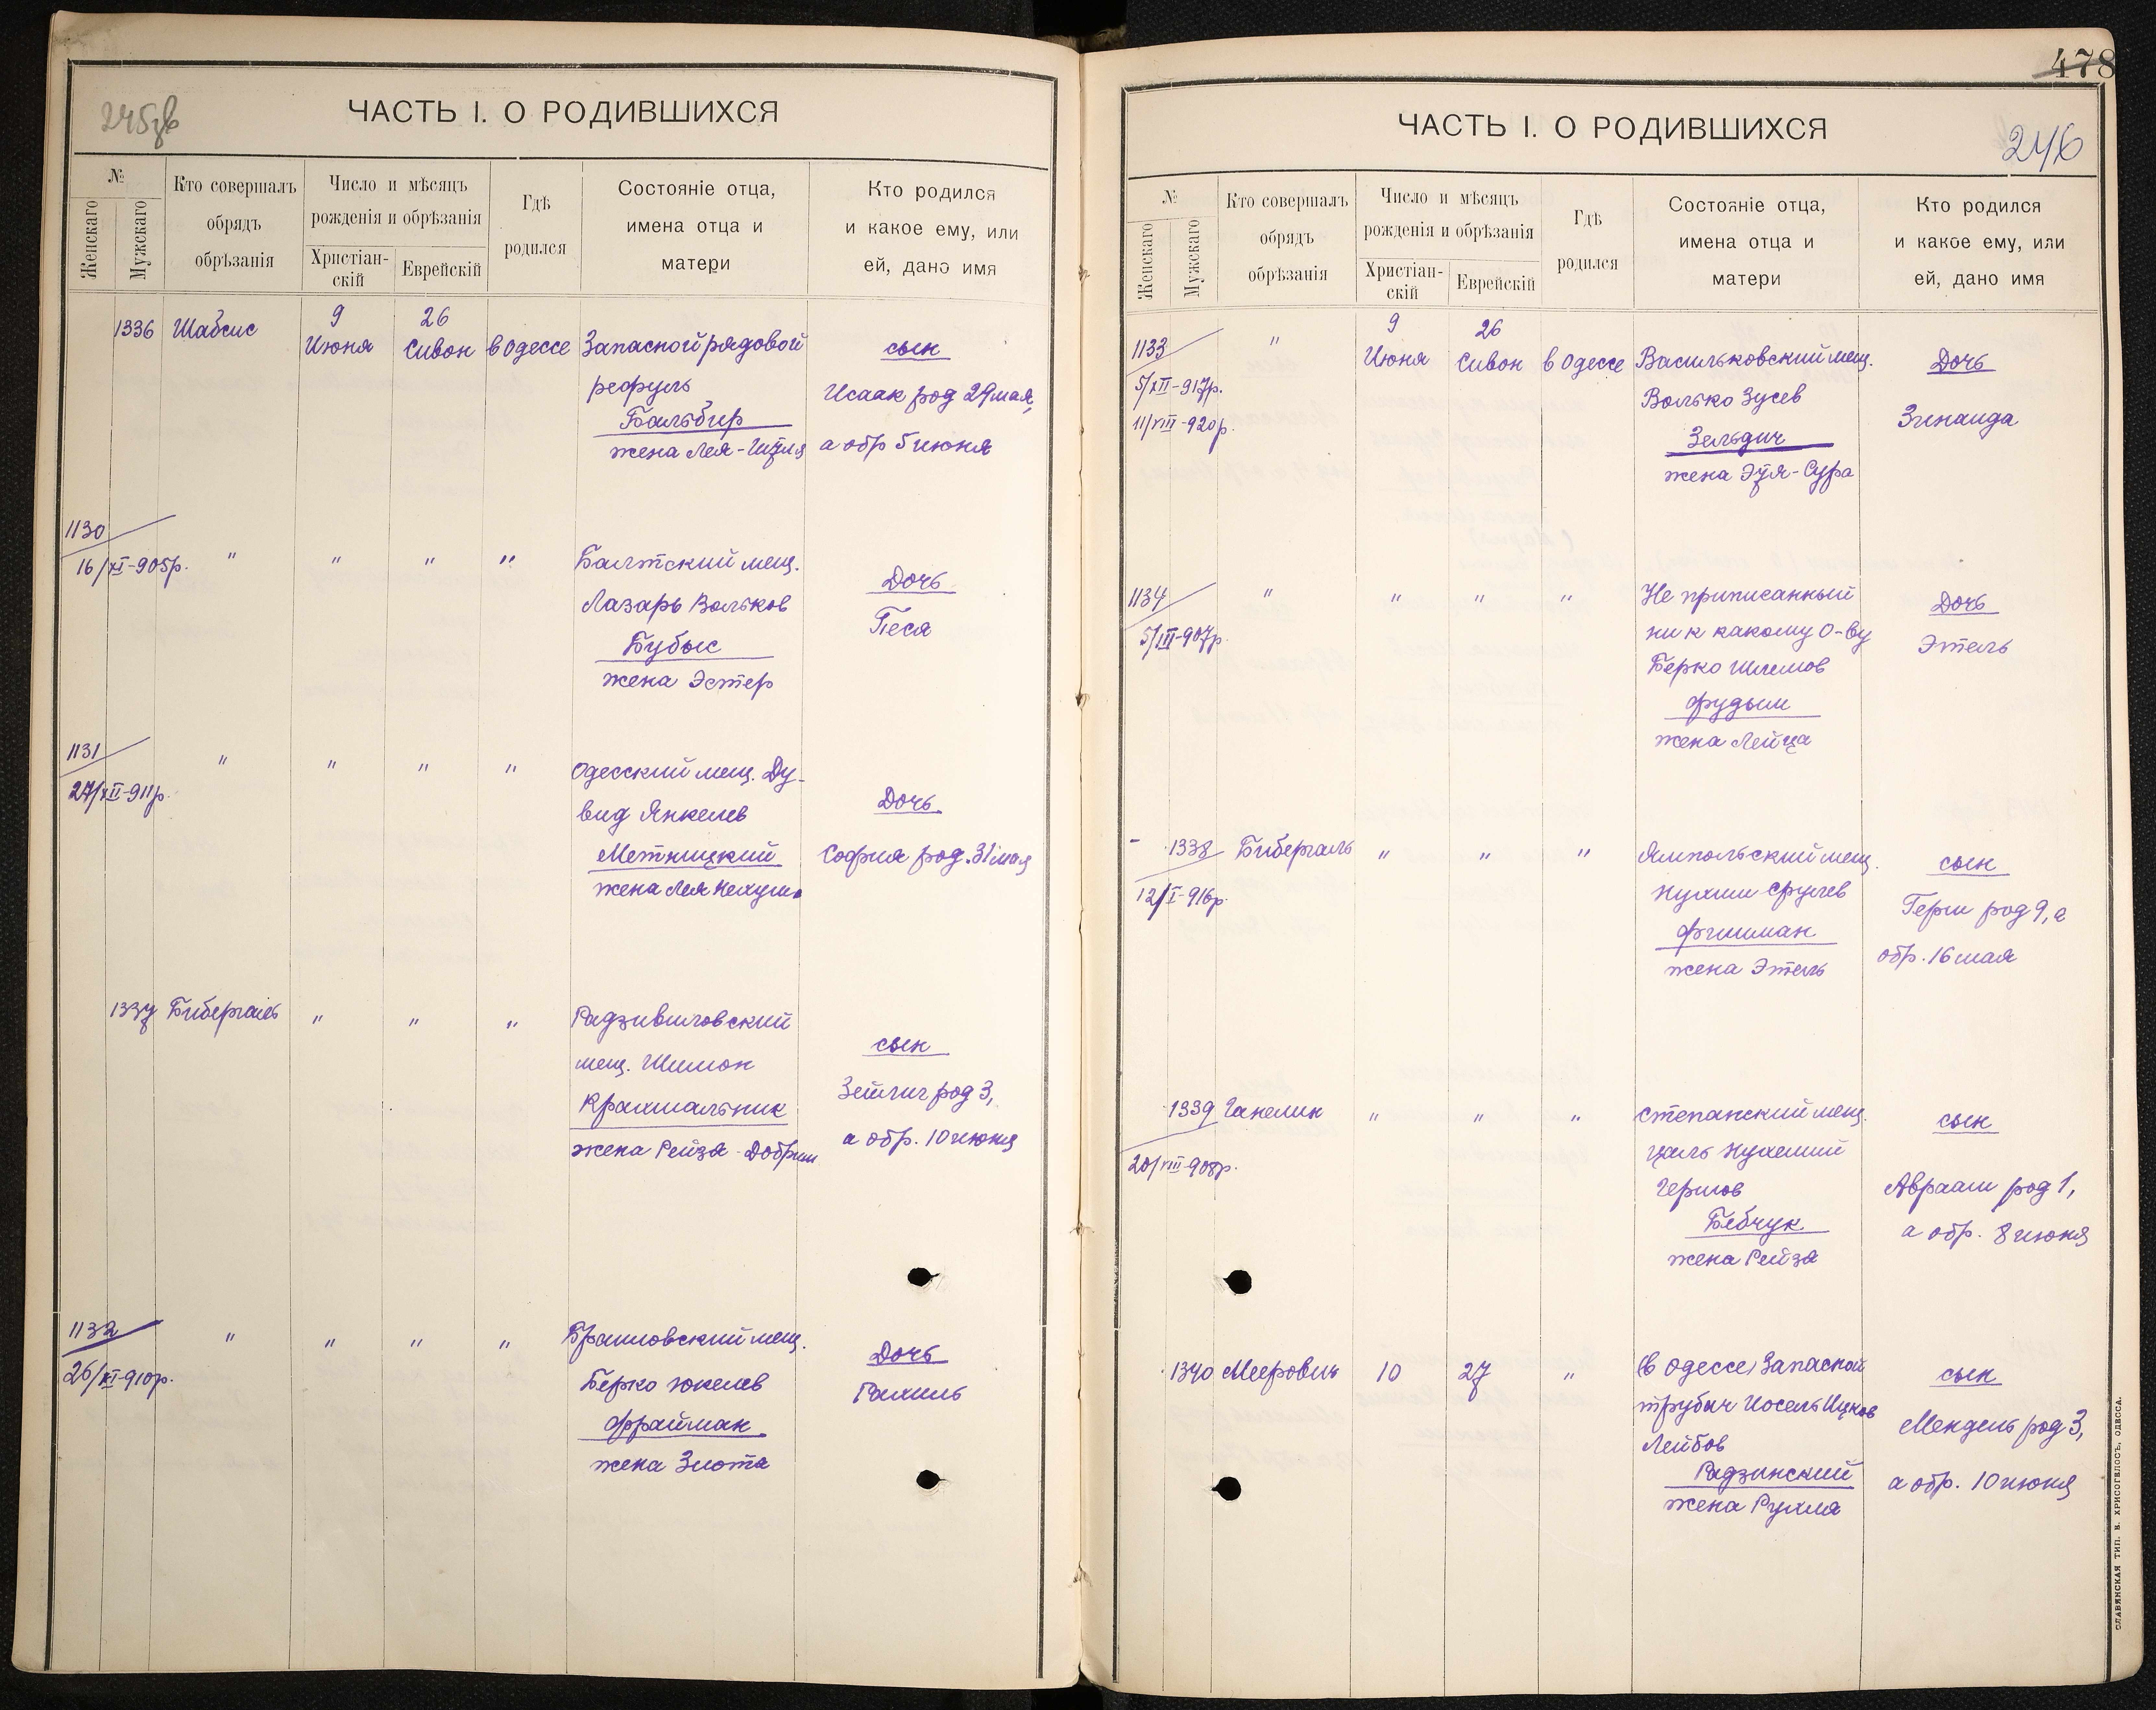 245об
ЧАСТЬ I. О РОДИВШИХСЯ
№
Женскаго
Мужскаго
Кто совершалъ
обрядъ
обрѣзанія
Число и мѣсяцъ
рожденія и обрѣзанія
Христіан-
скій
Еврейскій
Гдѣ
родился
Состояніе отца,
имена отца и
матери
Кто родился
и какое ему, или
ей, дано имя
1336 Шабсис
9
Июня
26
Сивон
в Одессе
Запасной рядовой
рефуль
Бальбир
жена Лея-
сын
Исаак род 29 мая,
а обр 5 июня
1130
16/XI-905р.
" " " "
Балтский мещ.
Лазарь Вольков
Бубыс
жена Эстер
Дочь
Песя
1131
27/XII-911р.
" " " "
Одесский мещ. Ду-
вид Янкелев
Метницкий
жена Лея Нехума
Дочь
София род. 31 мая
1337 Бибергаль " " "
Радзивиловский
мещ. Шимон
Крахмальник
жена Рейза-Добриш
сын
Зейлиг род 3,
а обр. 10 июня
1132
26/XI-910р.
" " " "
Браиловский мещ.
Берко Юкелев
Фрайман
жена Злота
Дочь
Рахиль
478
246
ЧАСТЬ I. О РОДИВШИХСЯ
№
Женскаго
Мужскаго
Кто совершалъ
обрядъ
обрѣзанія
Число и мѣсяцъ
рожденія и обрѣзанія
Христіан-
скій
Еврейскій
Гдѣ
родился
Состояніе отца,
имена отца и
матери
Кто родился
и какое ему, или
ей, дано имя
1133
5/XII-917р.
11/VIII-920р.
"
9
Июня
26
Сивон
в Одессе
Васильковский мещ.
Волько Зусев
Зельдич
жена Эйдя-Сура
Дочь
Зинаида
1134
5/III-907р
" " " "
Не приписанный
ни к какому о-ву
Берко Шлемов
Фудым
жена Лейца
Дочь
Этель
- 1338 Бибергаль " " "
12/I-916р.
Ямпольский мещ.
Нухим Срулев
Фишман
жена Этель
сын
Герш род 9, а
обр. 16 мая
1339 Ганелин " " "
20/VIII-908р.
Степанский мещ.
Цаль Нухемий
Гершов
Бебчук
жена Рейза
сын
Авраам род 1,
а обр. 8 июня
1340 Меерович 10 27 "
(в Одессе) Запасной
трубач Иосель Ицков
Лейбов
Радзинский
жена Рухля
сын
Мендель род 3,
а обр. 10 июня
СЛАВЯНСКАЯ ТИП. Н. ХРИСОГЕЛОСЪ, ОДЕССА.